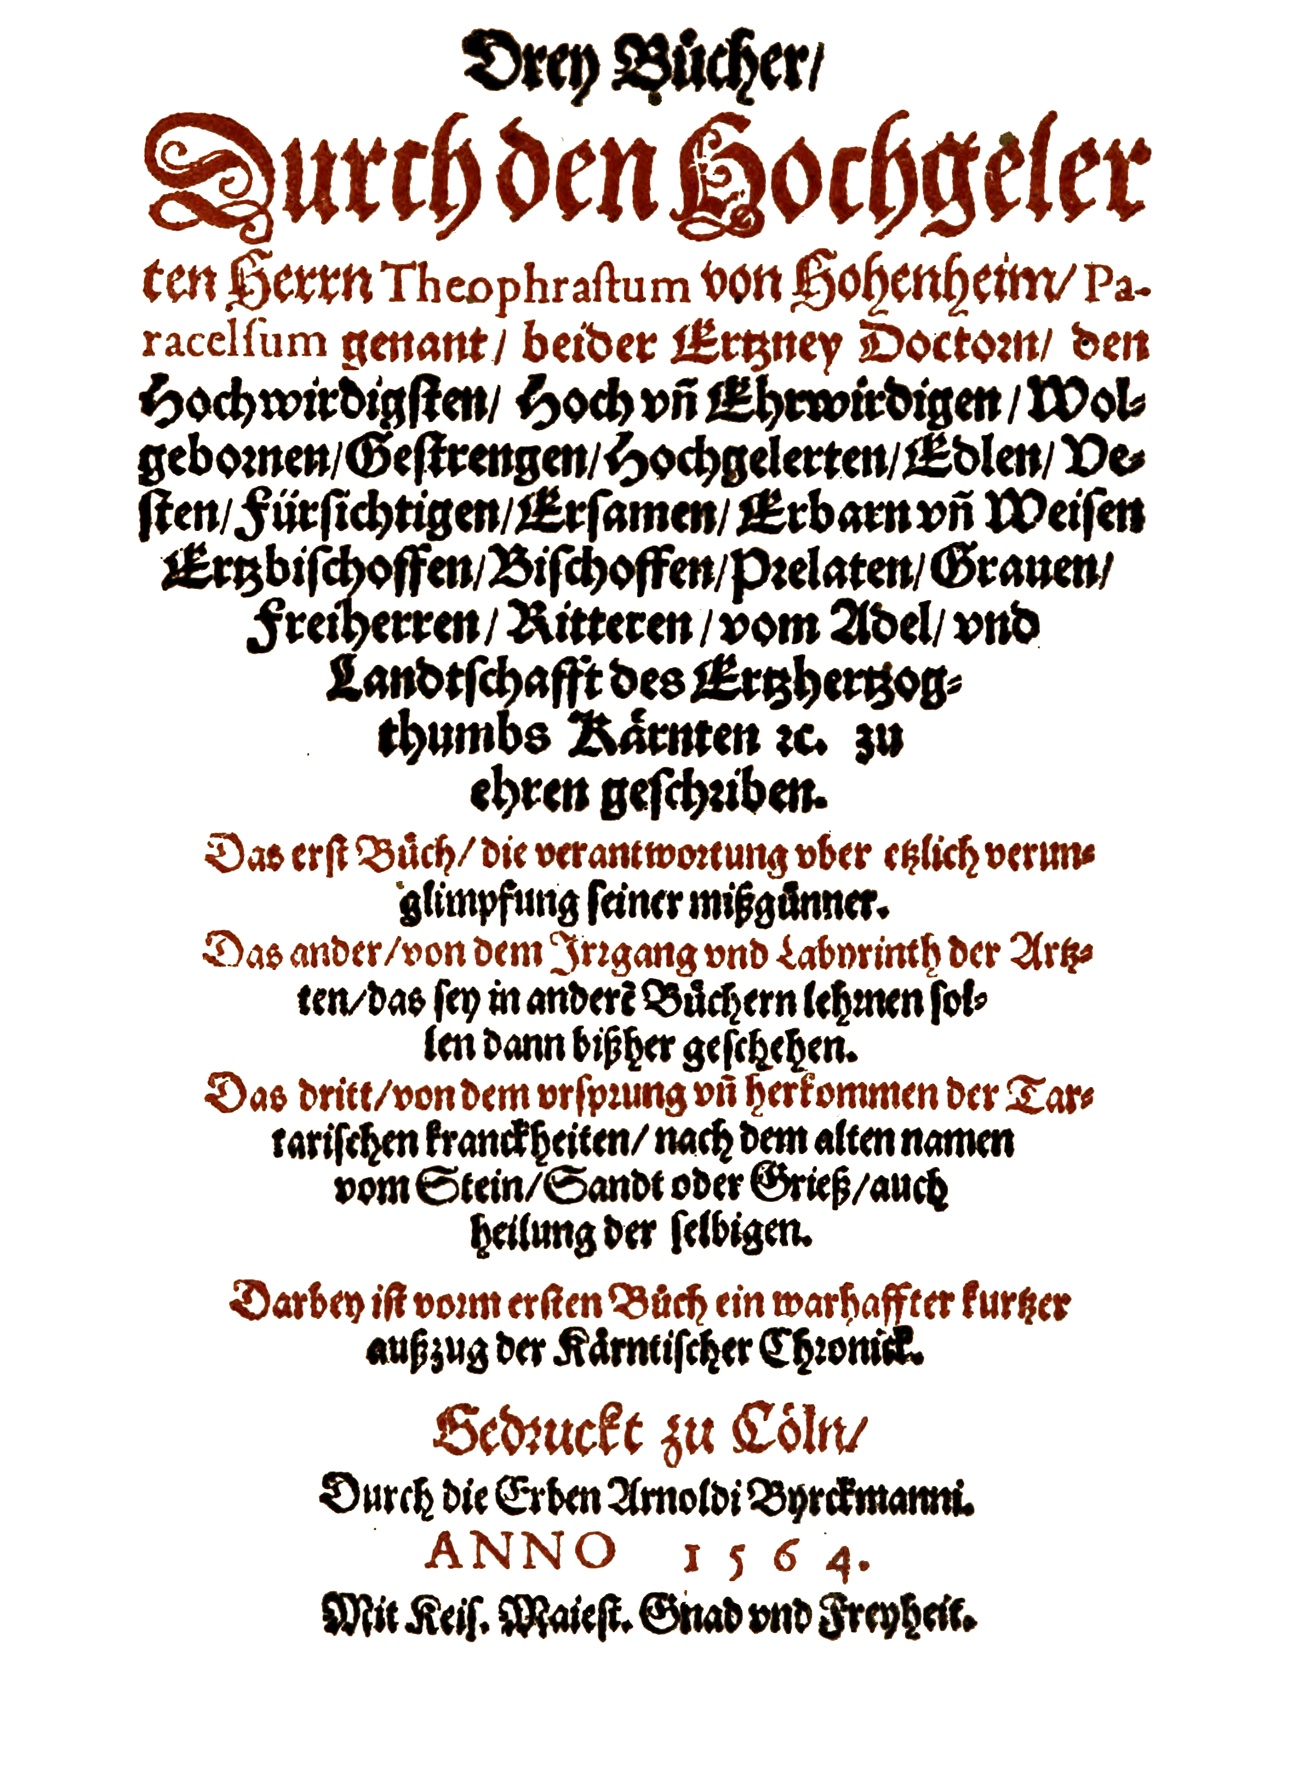 Drey Bücher/
Durch den Hochgeler
ten Herrn Theophraſtum von Hohenheim/ Pa-
racelſum genant/ beider Ertzney Doctorn/ den
Hochwirdigſten/ Hoch vñ Ehrwirdigen/ Wol-
gebornen/ Geſtrengen/ Hochgelerten/ Edlen/ Ve-
ſten/ Fürſichtigen/ Erſamen/ Erbarn vñ Weiſen
Ertzbiſchoffen/ Biſchoffen/ Prelaten/ Grauen/
Freiherren/ Ritteren/ vom Adel/ vnd
Landtſchafft des Ertzhertzog-
thumbs Kaͤrnten ꝛc. zu
ehren geſchriben.
Das erſt Bůch/ die verantwortung vber etzlich verun-
glimpfung ſeiner mißgünner.
Das ander/ von dem Irrgang vnd Labyrinth der Artz-
ten/ das ſey in anderẽ Bůchern lehrnen ſol-
len dann bißher geſchehen.
Das dritt/ von dem vrſprung vñ herkommen der Tar-
tariſchen kranckheiten/ nach dem alten namen
vom Stein/ Sandt oder Grieß/ auch
heilung der ſelbigen.
Darbey iſt vorm erſten Bůch ein warhaffter kurtzer
außzug der Kaͤrntiſcher Chronick.
Gedruckt zu Coͤln/
Durch die Erben Arnoldi Byrckmanni.
ANNO 1564.
Mit Keiſ. Maieſt. Gnad vnd Freyheit.